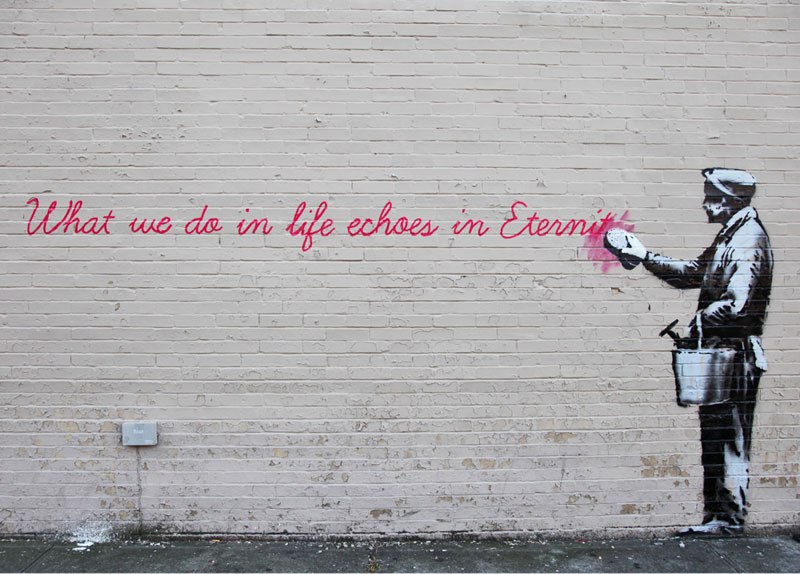 What we do in life echoes in Eternit